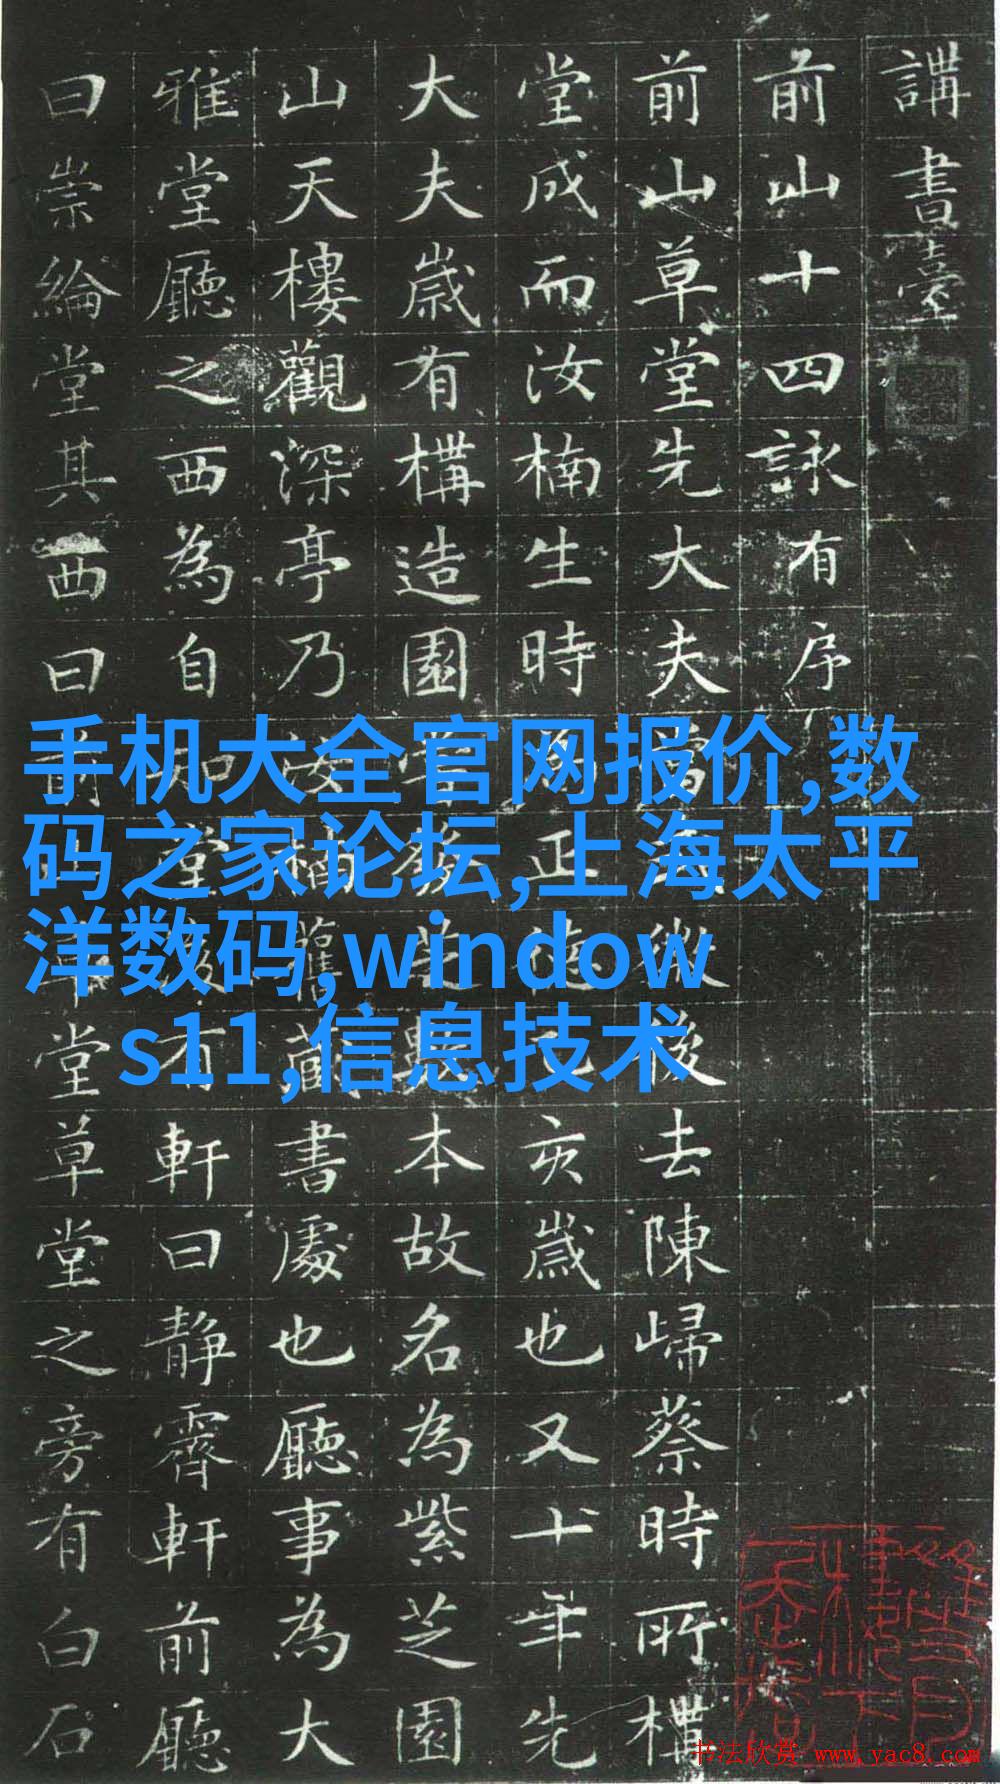 講書臺
前山十四詠有序
前山草堂先大夫後去陳歸蔡時所構
堂成而汝楠生時為正德乙亥歲也又十年先
大夫歲有構造園本故名為紫芝園
山天樓觀深亭乃汝楠舊藏書處也廳事為大
雅堂廳之西為自知堂有軒曰靜霽軒前廳
曰崇綸堂其西曰前山草堂草堂之旁有白石
手机大全官网报价,数
码之家论坛,上海太平
洋数码,window
s11,信息技术
书法欣赏 www.yac8.com